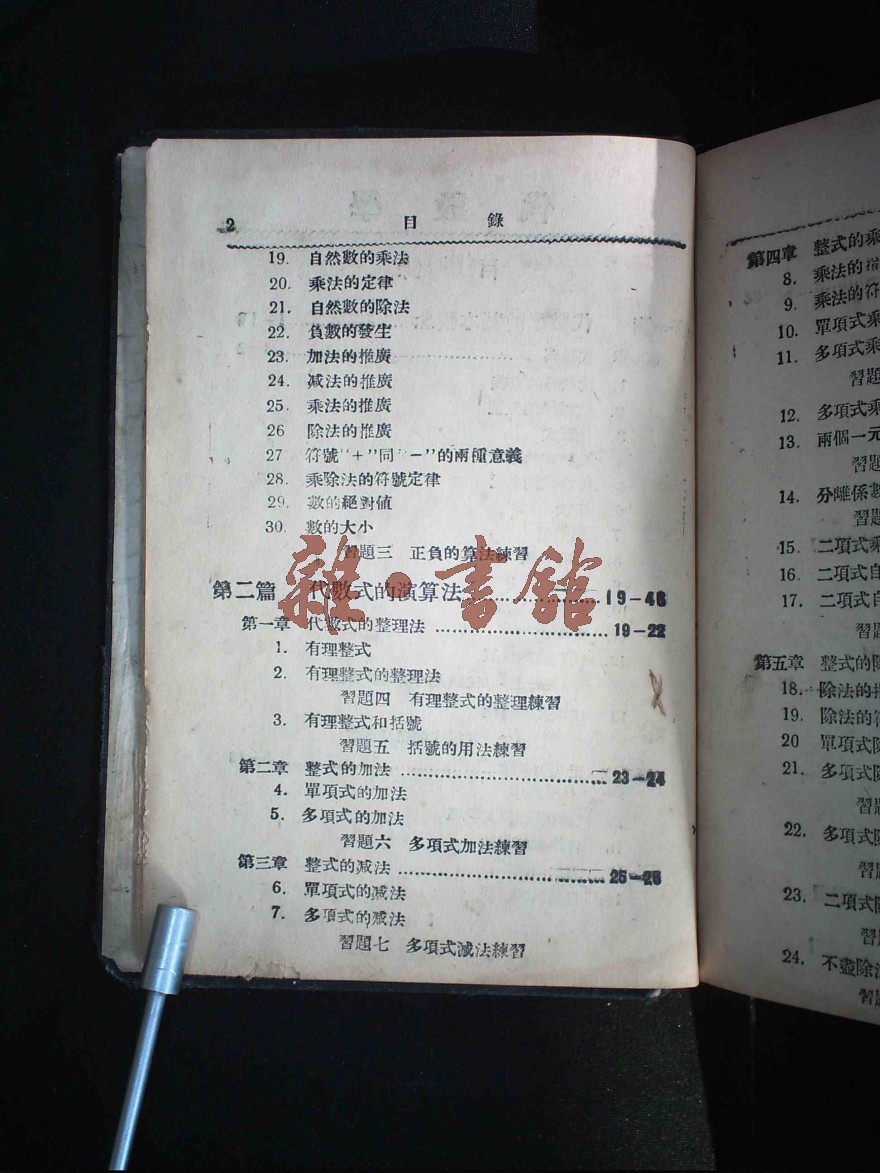 2 目錄
19. 自然數的乘法
20. 乘法的定律
21. 自然數的除法
22. 負數的發生
23. 加法的推廣
24. 減法的推廣
25. 乘法的推廣
26 除法的推廣
27 符號"+"同"−"的兩種意義
28. 乘除法的符號定律
29. 數的絕對值
30. 數的大小
習題三 正負的算法練習
第二篇 代數式的演算法 19-46
第一章 代數式的整理法 19-22
1. 有理整式
2. 有理整式的整理法
習題四 有理整式的整理練習
3. 有理整式和括號
習題五 括號的用法練習
第二章 整式的加法 23-24
4. 單項式的加法
5. 多項式的加法
習題六 多項式加法練習
第三章 整式的減法 25-26
6. 單項式的減法
7. 多項式的減法
習題七 多項式減法練習
雜·書館
第四章 整式的乘
8. 乘法的
9. 乘法的符
10. 單項式乘
11. 多項式乘
習題
12. 多項式乘
13. 兩個一元
習題
14. 分離係數
習題
15. 二項式乘
16. 二項式自
17. 二項式自
習題
第五章 整式的除
18. 除法的
19. 除法的符
20 單項式除
21. 多項式除
習題
22. 多項式除
習題
23. 二項式除
習題
24. 不盡除法
習題